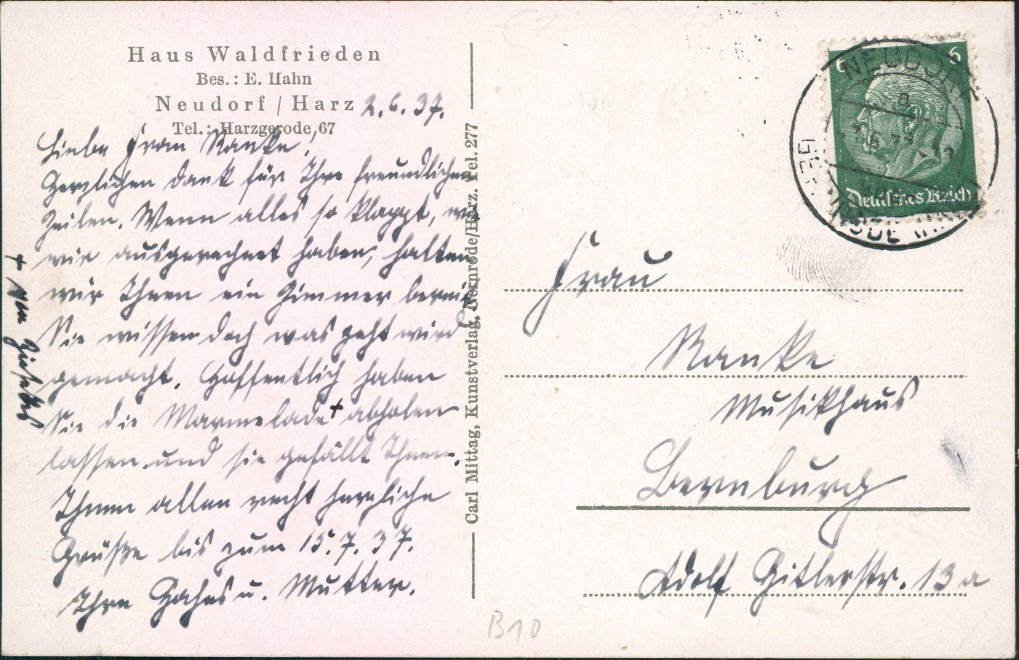 Haus Waldfrieden
Bes.: E. Hahn
Neudorf / Harz 2.6.37.
Tel.: Harzgerode 67
Liebe Frau Ranke!
Herzlichen Dank für Ihre freundlichen
Zeilen. Wenn alles so klappt, wie
wir ausgerechnet haben, halten
wir Ihnen ein Zimmer bereit.
Sie wissen doch was geht wird
gemacht. Hoffentlich haben
Sie die Marmelade + abholen
lassen und sie gefällt Ihnen.
Ihnen allen recht herzliche
Grüße bis zum 15.7.37.
Ihre Hahns u. Mutter.
+ von
Carl Mittag, Kunstverlag, Gernrode/Harz. Tel. 277
6
Deutsches Reich
NEUDORF
Frau
Ranke
Musikhaus
Bernburg
Adolf Hitlerstr. 13a
B10